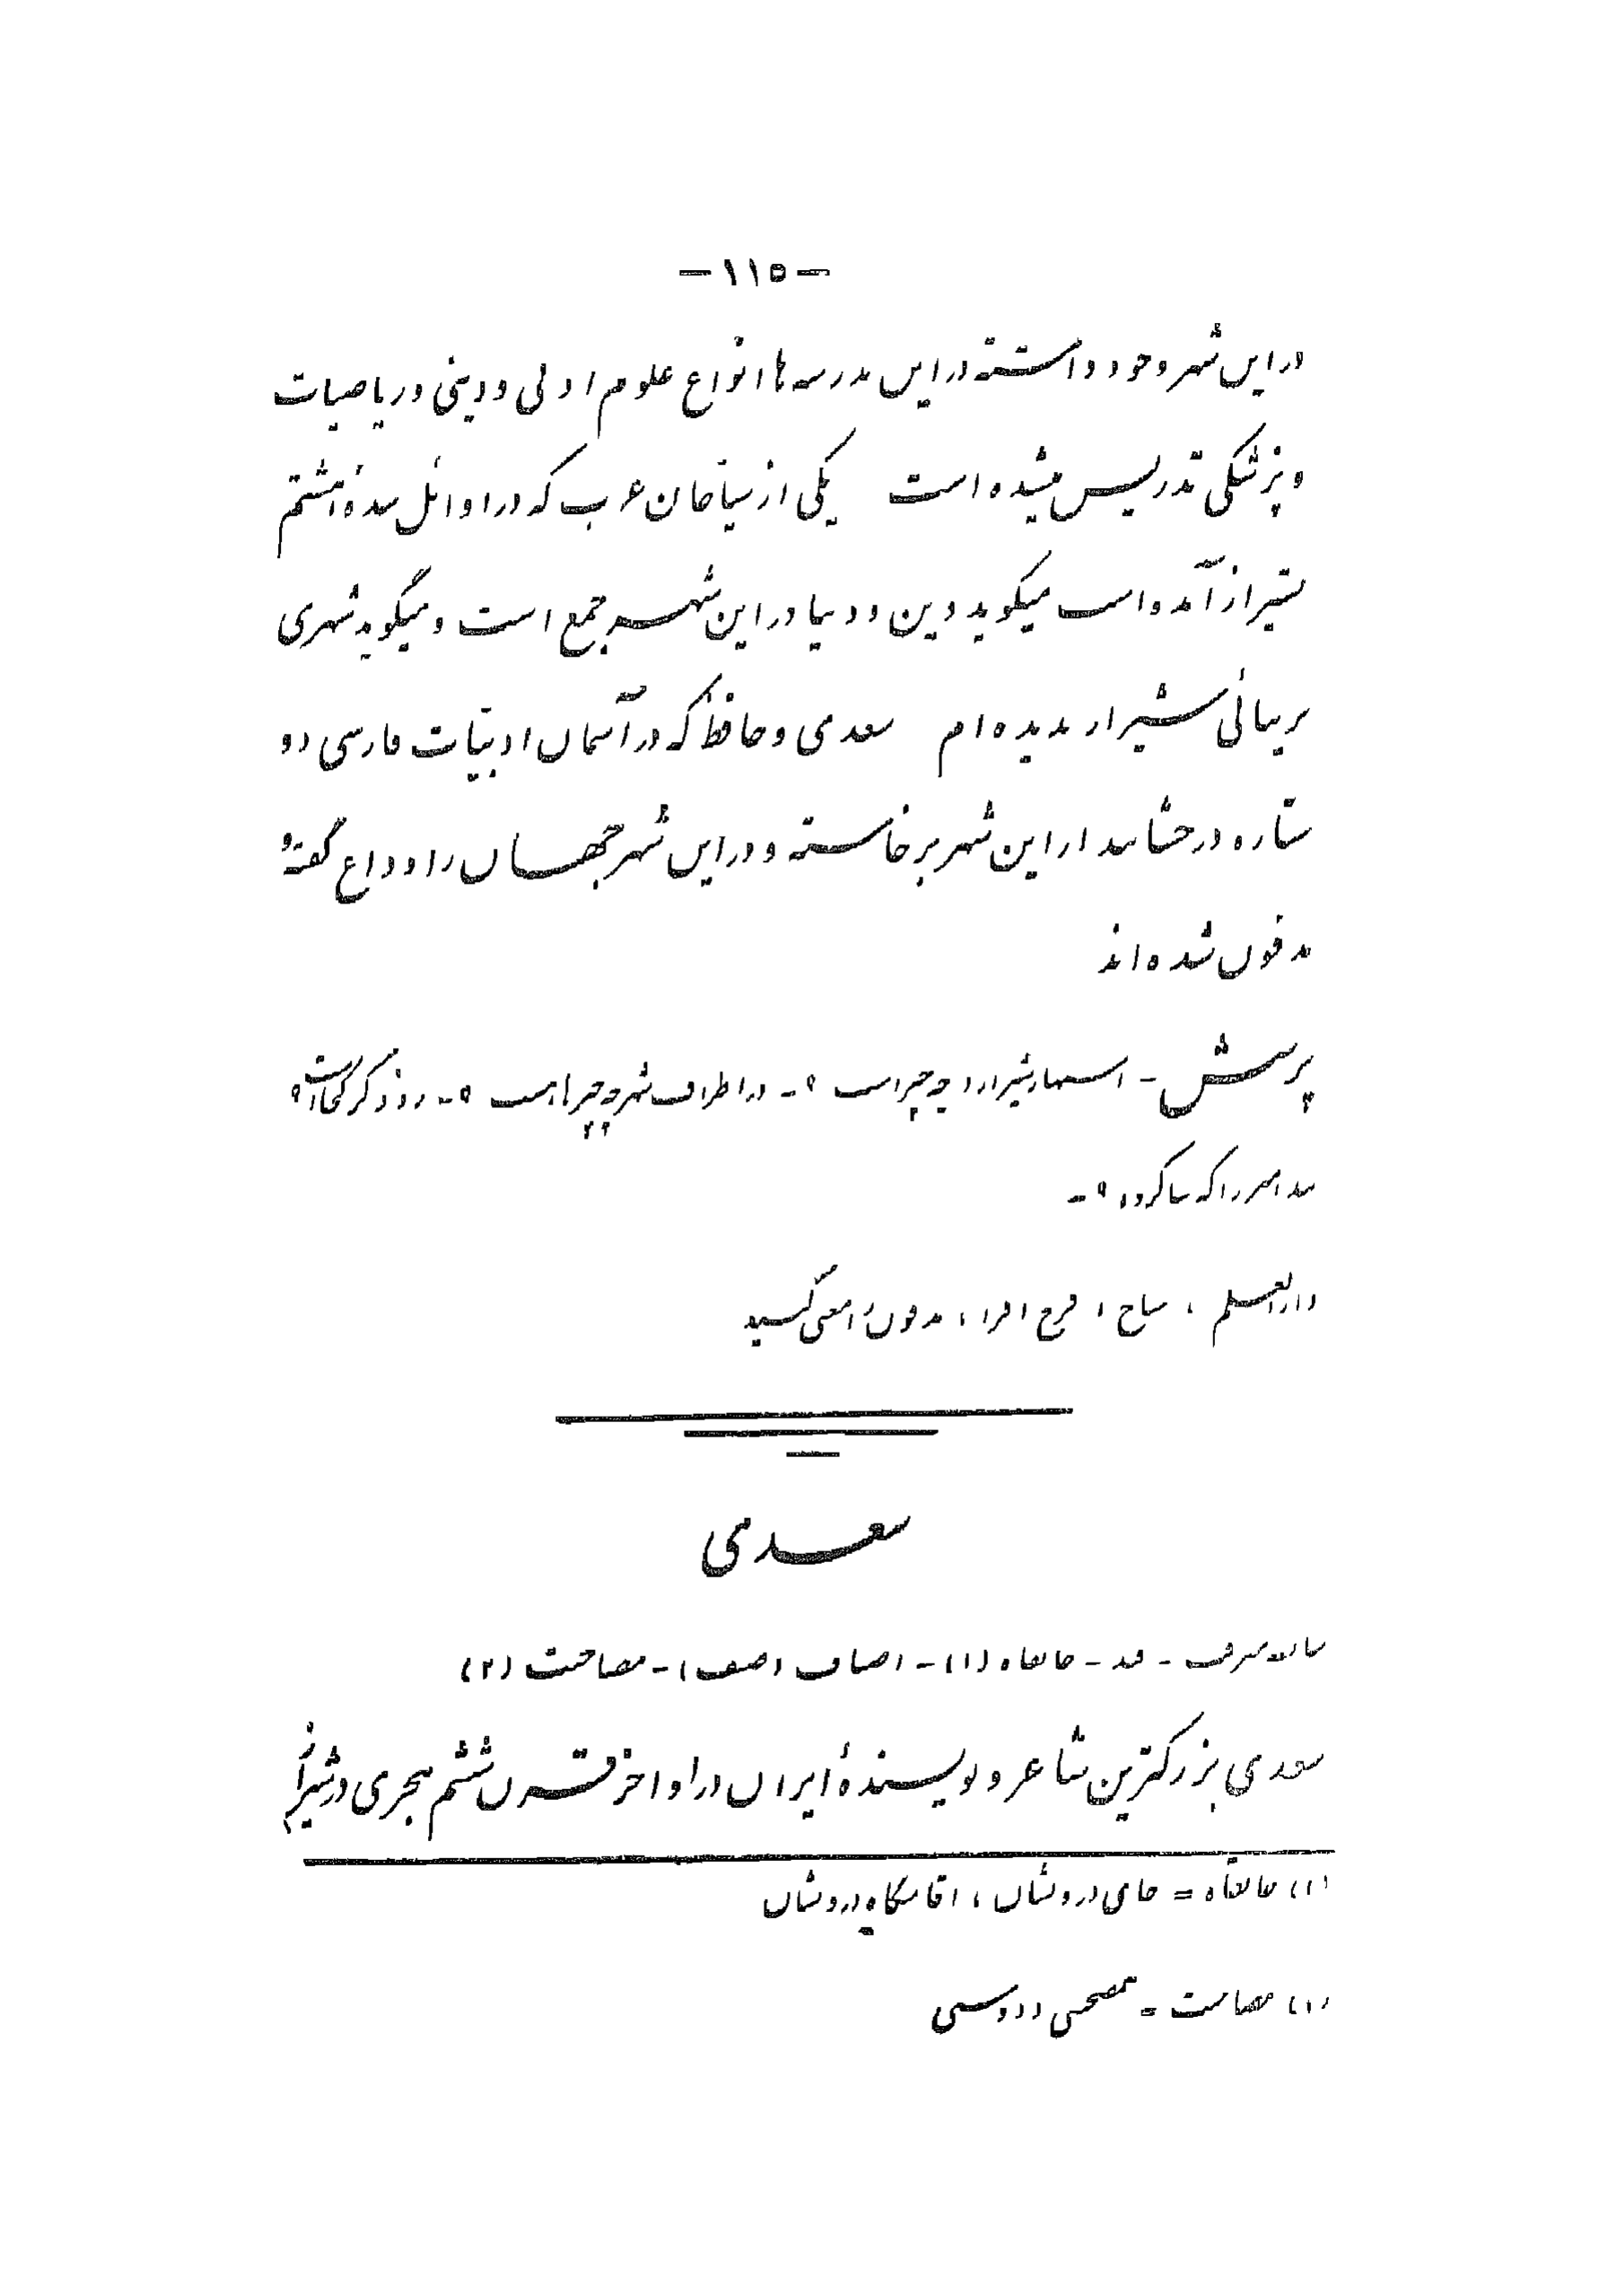 -۱۱۵-
در این شهر وجود داشته در این مدرسه ها انواع علوم ادبی و دینی و ریاضیات
و پزشکی تدریس میشده است یکی از سیاحان عرب که در اوائل سدهٔ هشتم
بشیراز آمده است میگوید دین و دنیا در این شهر جمع است و میگوید شهری
بزیبائی شیراز ندیده ام سعدی و حافظ که در آسمان ادبیات فارسی دو
ستاره درخشانند از این شهر برخاسته و در این شهر جهان را وداع گفته و
مدفون شده اند
پرسش - اسم شیراز چه چیز است ؟ - در اطراف شهر چه چیزها هست ؟ - رود رکن کجا است ؟
بند امیر را که بنا کرده ؟ -
دارالعلم ، سیاح ، فرح افزا ، مدفون را معنی کنید
سعدی
قند - خانقاه (۱) - اوصاف (وصف) - مصاحبت (۲)
سعدی بزرگترین شاعر و نویسندهٔ ایران در اواخر قرن ششم هجری در شیراز
(۱) خانقاه = جای درویشان ، اقامتگاه درویشان
(۱) مصاحبت = همصحبتی و دوستی